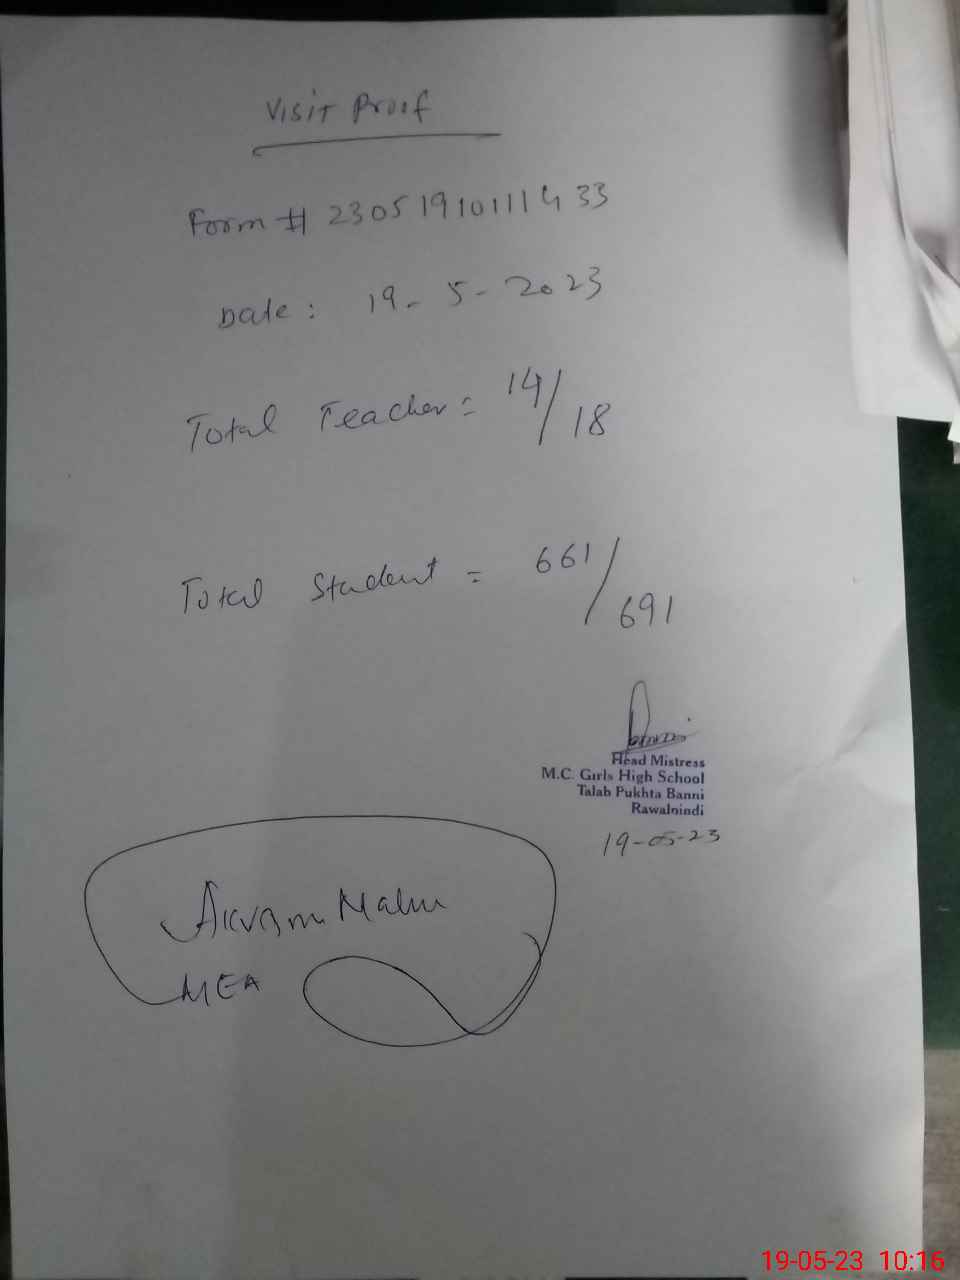 Visit Proof
Form # 230519101114 33
Date : 19 - 5 - 2023
Total Teacher = 14/18
Total Student = 661/691
Head Mistress
M.C. Girls High School
Talab Pukhta Banni
Rawalpindi
19-05-23
Akram
MEA
19-05-23 10:16